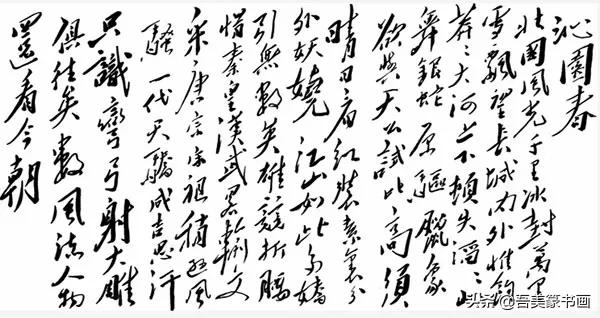 沁園春
北國風光千里冰封萬里
雪飄望長城内外惟餘
莽々大河上下頓失滔々山
舞銀蛇原驅臘象
欲與天公試比高須
晴日看紅裝素裹分
外妖嬈江山如此多嬌
引無數英雄競折腰
惜秦皇漢武略輸文
采唐宗宋祖稍遜風
騷一代天驕成吉思汗
只識彎弓射大雕
俱往矣數風流人物
還看今朝
头条 @吾美篆书画